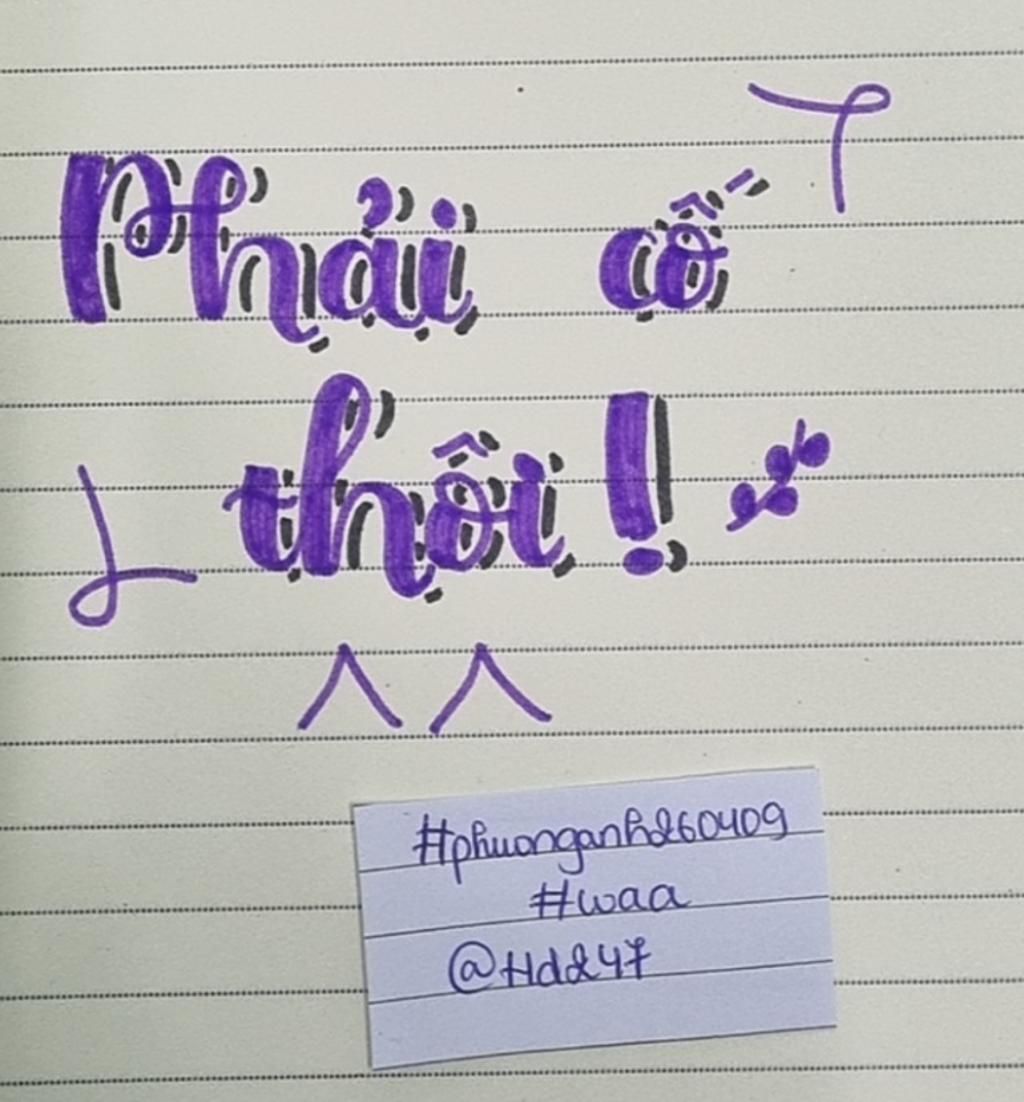 Phải cố
thôi!
^^
#phuonganh260409
#waa
@Hd247